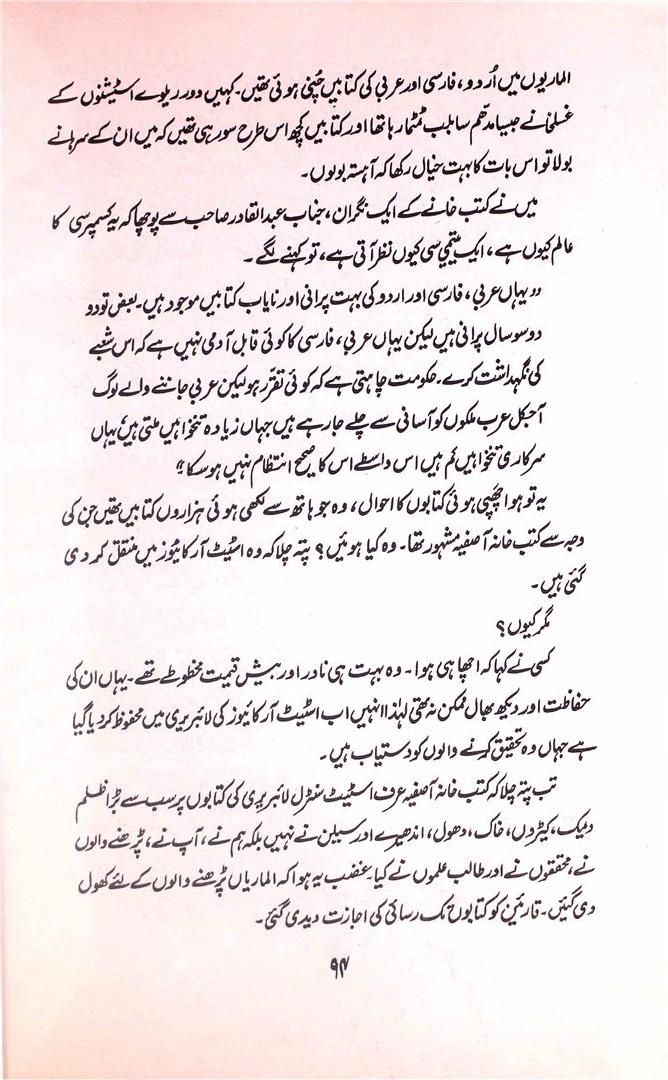 الماریوں میں اُردو، فارسی اور عربی کی کتابیں چُنی ہوئی تھیں۔ کہیں دور ریلوے اسٹیشنوں کے
غسلخانے جیسا مدھم سا بلب ٹمٹما رہا تھا اور کتابیں کچھ اس طرح سو رہی تھیں کہ میں ان کے سرہانے
بولا تو اس بات کا بہت خیال رکھا کہ آہستہ بولوں۔
میں نے کتب خانے کے ایک نگران، جناب عبدالقادر صاحب سے پوچھا کہ یہ کسمپرسی کا
عالم کیوں ہے، ایک یتیمی سی کیوں نظر آتی ہے، تو کہنے لگے۔
”یہاں عربی، فارسی اور اردو کی بہت پرانی اور نایاب کتابیں موجود ہیں۔ بعض تو دو
دو سو سال پرانی ہیں لیکن یہاں عربی، فارسی کا کوئی قابل آدمی نہیں ہے کہ اس شعبے
کی نگہداشت کرے۔ حکومت چاہتی ہے کہ کوئی تقرّر ہو لیکن عربی جاننے والے لوگ
آجکل عرب ملکوں کو آسانی سے چلے جا رہے ہیں جہاں زیادہ تنخواہیں ملتی ہیں، یہاں
سرکاری تنخواہیں کم ہیں اس واسطے اس کا صحیح انتظام نہیں ہو سکا“
یہ تو ہوا چھپی ہوئی کتابوں کا احوال، وہ جو ہاتھ سے لکھی ہوئی ہزاروں کتابیں تھیں جن کی
وجہ سے کتب خانہ آصفیہ مشہور تھا۔ وہ کیا ہوئیں؟ پتہ چلا کہ وہ اسٹیٹ آرکائیوز میں منتقل کر دی
گئی ہیں۔
مگر کیوں؟
کسی نے کہا کہ اچھا ہی ہوا۔ وہ بہت ہی نادر اور بیش قیمت مخطوطے تھے۔ یہاں ان کی
حفاظت اور دیکھ بھال ممکن نہ تھی لہٰذا انہیں اب اسٹیٹ آرکائیوز کی لائبریری میں محفوظ کر دیا گیا
ہے جہاں وہ تحقیق کرنے والوں کو دستیاب ہیں۔
تب پتہ چلا کہ کتب خانہ آصفیہ عرف اسٹیٹ سنٹرل لائبریری کی کتابوں پر سب سے بڑا ظلم
دیمک، کیڑوں، خاک، دھول، اندھیرے اور سیلن نے نہیں بلکہ ہم نے، آپ نے، پڑھنے والوں
نے، محققوں نے اور طالب علموں نے کیا۔ غضب یہ ہوا کہ الماریاں پڑھنے والوں کے لئے کھول
دی گئیں۔ قارئین کو کتابوں تک رسائی کی اجازت دیدی گئی۔
۹۴